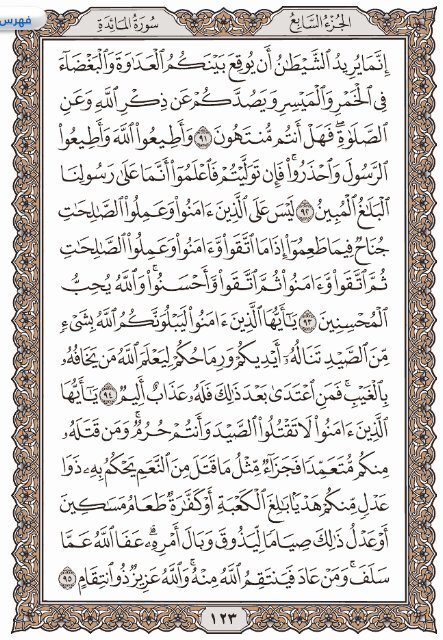 فهرس
الجُزءُ السَّابِعُ
سُورَةُ المَائِدَةِ
إِنَّمَا يُرِيدُ ٱلشَّيۡطَٰنُ أَن يُوقِعَ بَيۡنَكُمُ ٱلۡعَدَٰوَةَ وَٱلۡبَغۡضَآءَ
فِي ٱلۡخَمۡرِ وَٱلۡمَيۡسِرِ وَيَصُدَّكُمۡ عَن ذِكۡرِ ٱللَّهِ وَعَنِ
ٱلصَّلَوٰةِۖ فَهَلۡ أَنتُم مُّنتَهُونَ ٩١ وَأَطِيعُواْ ٱللَّهَ وَأَطِيعُواْ
ٱلرَّسُولَ وَٱحۡذَرُواْۚ فَإِن تَوَلَّيۡتُمۡ فَٱعۡلَمُوٓاْ أَنَّمَا عَلَىٰ رَسُولِنَا
ٱلۡبَلَٰغُ ٱلۡمُبِينُ ٩٢ لَيۡسَ عَلَى ٱلَّذِينَ ءَامَنُواْ وَعَمِلُواْ ٱلصَّٰلِحَٰتِ
جُنَاحٞ فِيمَا طَعِمُوٓاْ إِذَا مَا ٱتَّقَواْ وَّءَامَنُواْ وَعَمِلُواْ ٱلصَّٰلِحَٰتِ
ثُمَّ ٱتَّقَواْ وَّءَامَنُواْ ثُمَّ ٱتَّقَواْ وَّأَحۡسَنُواْۚ وَٱللَّهُ يُحِبُّ
ٱلۡمُحۡسِنِينَ ٩٣ يَٰٓأَيُّهَا ٱلَّذِينَ ءَامَنُواْ لَيَبۡلُوَنَّكُمُ ٱللَّهُ بِشَيۡءٖ
مِّنَ ٱلصَّيۡدِ تَنَالُهُۥٓ أَيۡدِيكُمۡ وَرِمَاحُكُمۡ لِيَعۡلَمَ ٱللَّهُ مَن يَخَافُهُۥ
بِٱلۡغَيۡبِۚ فَمَنِ ٱعۡتَدَىٰ بَعۡدَ ذَٰلِكَ فَلَهُۥ عَذَابٌ أَلِيمٞ ٩٤ يَٰٓأَيُّهَا
ٱلَّذِينَ ءَامَنُواْ لَا تَقۡتُلُواْ ٱلصَّيۡدَ وَأَنتُمۡ حُرُمٞۚ وَمَن قَتَلَهُۥ
مِنكُم مُّتَعَمِّدٗا فَجَزَآءٞ مِّثۡلُ مَا قَتَلَ مِنَ ٱلنَّعَمِ يَحۡكُمُ بِهِۦ ذَوَا
عَدۡلٖ مِّنكُمۡ هَدۡيَۢا بَٰلِغَ ٱلۡكَعۡبَةِ أَوۡ كَفَّٰرَةٞ طَعَامُ مَسَٰكِينَ
أَوۡ عَدۡلُ ذَٰلِكَ صِيَامٗا لِّيَذُوقَ وَبَالَ أَمۡرِهِۦۗ عَفَا ٱللَّهُ عَمَّا
سَلَفَۚ وَمَنۡ عَادَ فَيَنتَقِمُ ٱللَّهُ مِنۡهُۚ وَٱللَّهُ عَزِيزٞ ذُو ٱنتِقَامٍ ٩٥
١٢٣